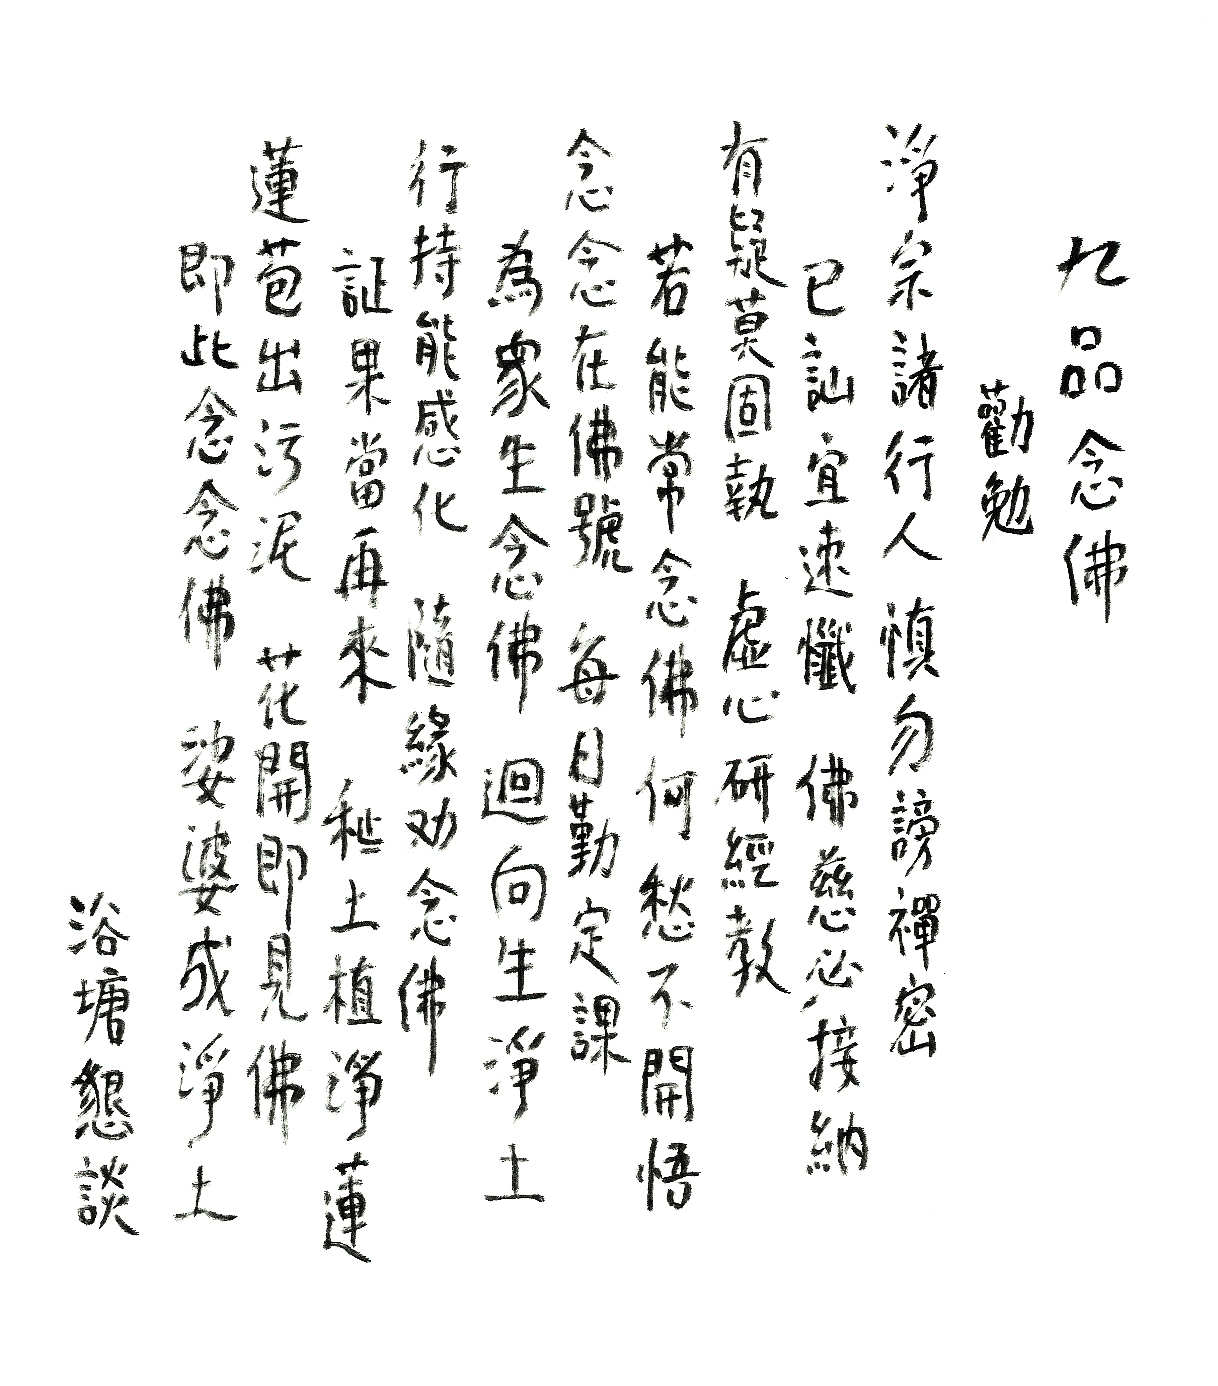 九品念佛
勸勉
淨宗諸行人 慎勿謗禪密
已訕宜速懺 佛慈必接納
有疑莫固執 虛心研經教
若能常念佛 何愁不開悟
念念在佛號 每日勤定課
為衆生念佛 迴向生淨土
行持能感化 隨緣劝念佛
証果當再來 秽土植淨蓮
蓮苞出污泥 花開即見佛
即此念念佛 娑婆成淨土
浴塘懇談